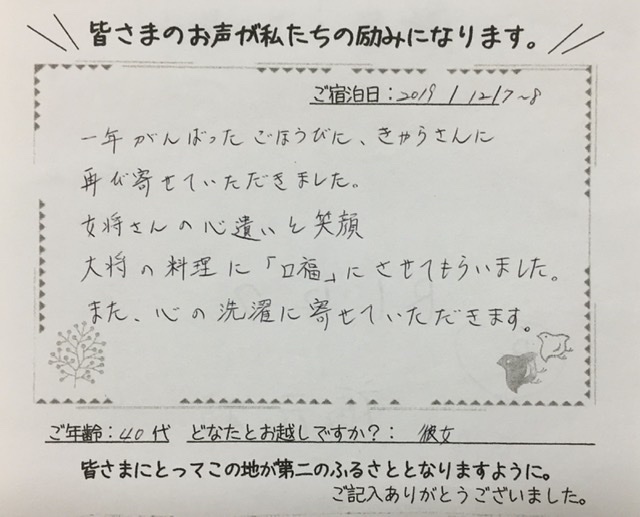 皆さまのお声が私たちの励みになります。
ご宿泊日:2019/12/7~8
一年がんばったごほうびに、きゃらさんに
再び寄せていただきました。
女将さんの心遣いと笑顔
大将の料理に「口福」にさせてもらいました。
また、心の洗濯に寄せていただきます。
ご年齢:40代 どなたとお越しですか?: 彼女
皆さまにとってこの地が第二のふるさととなりますように。
ご記入ありがとうございました。